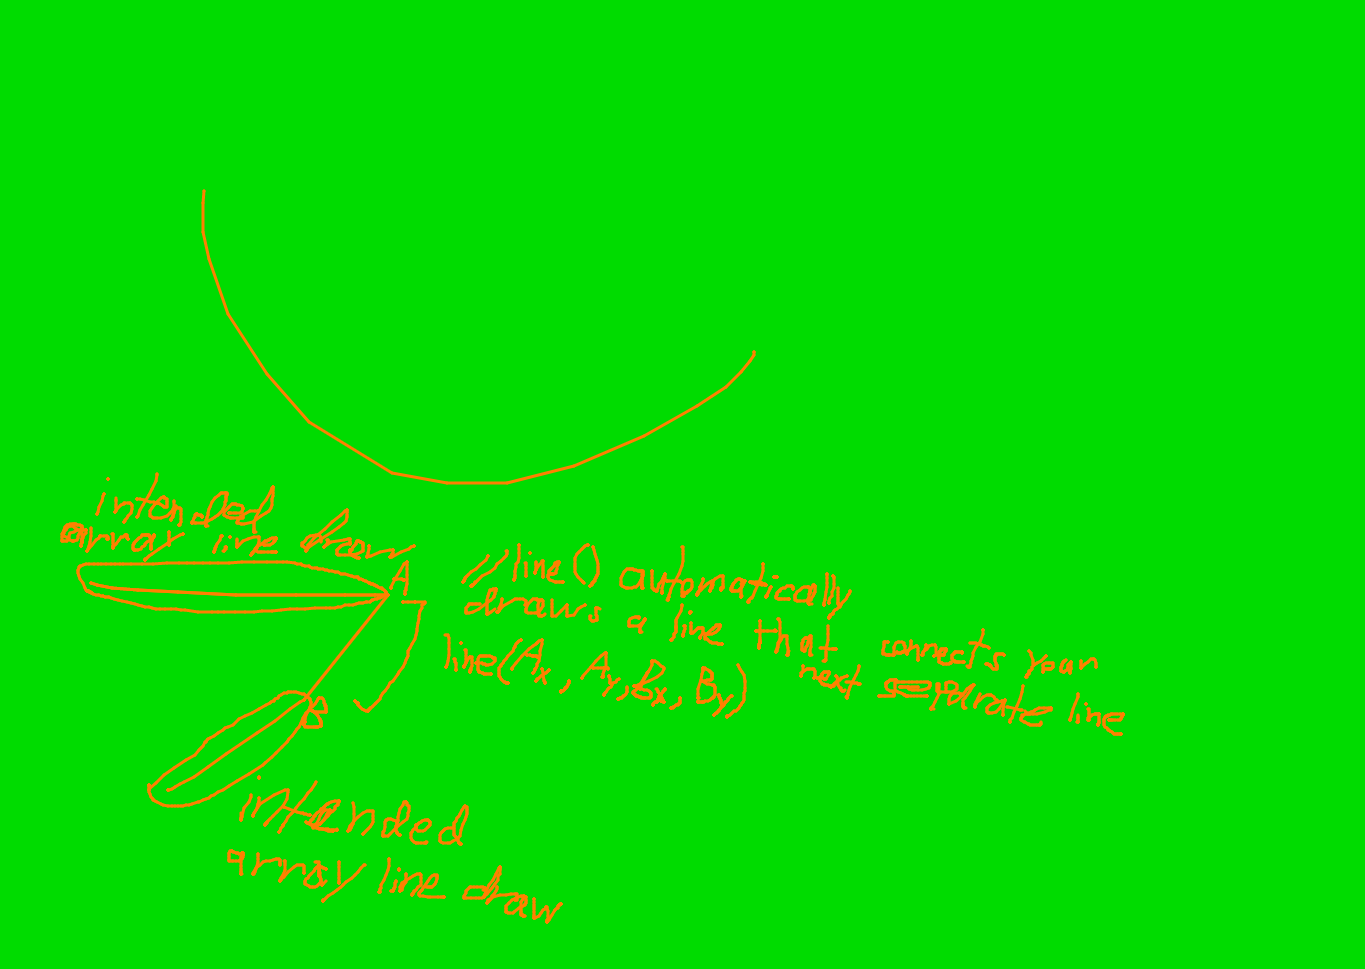 intended
array line draw
A
// line() automatically
draws a line that connects your
next separate line
line(Ax, Ay, Bx, By)
B
intended
array line draw